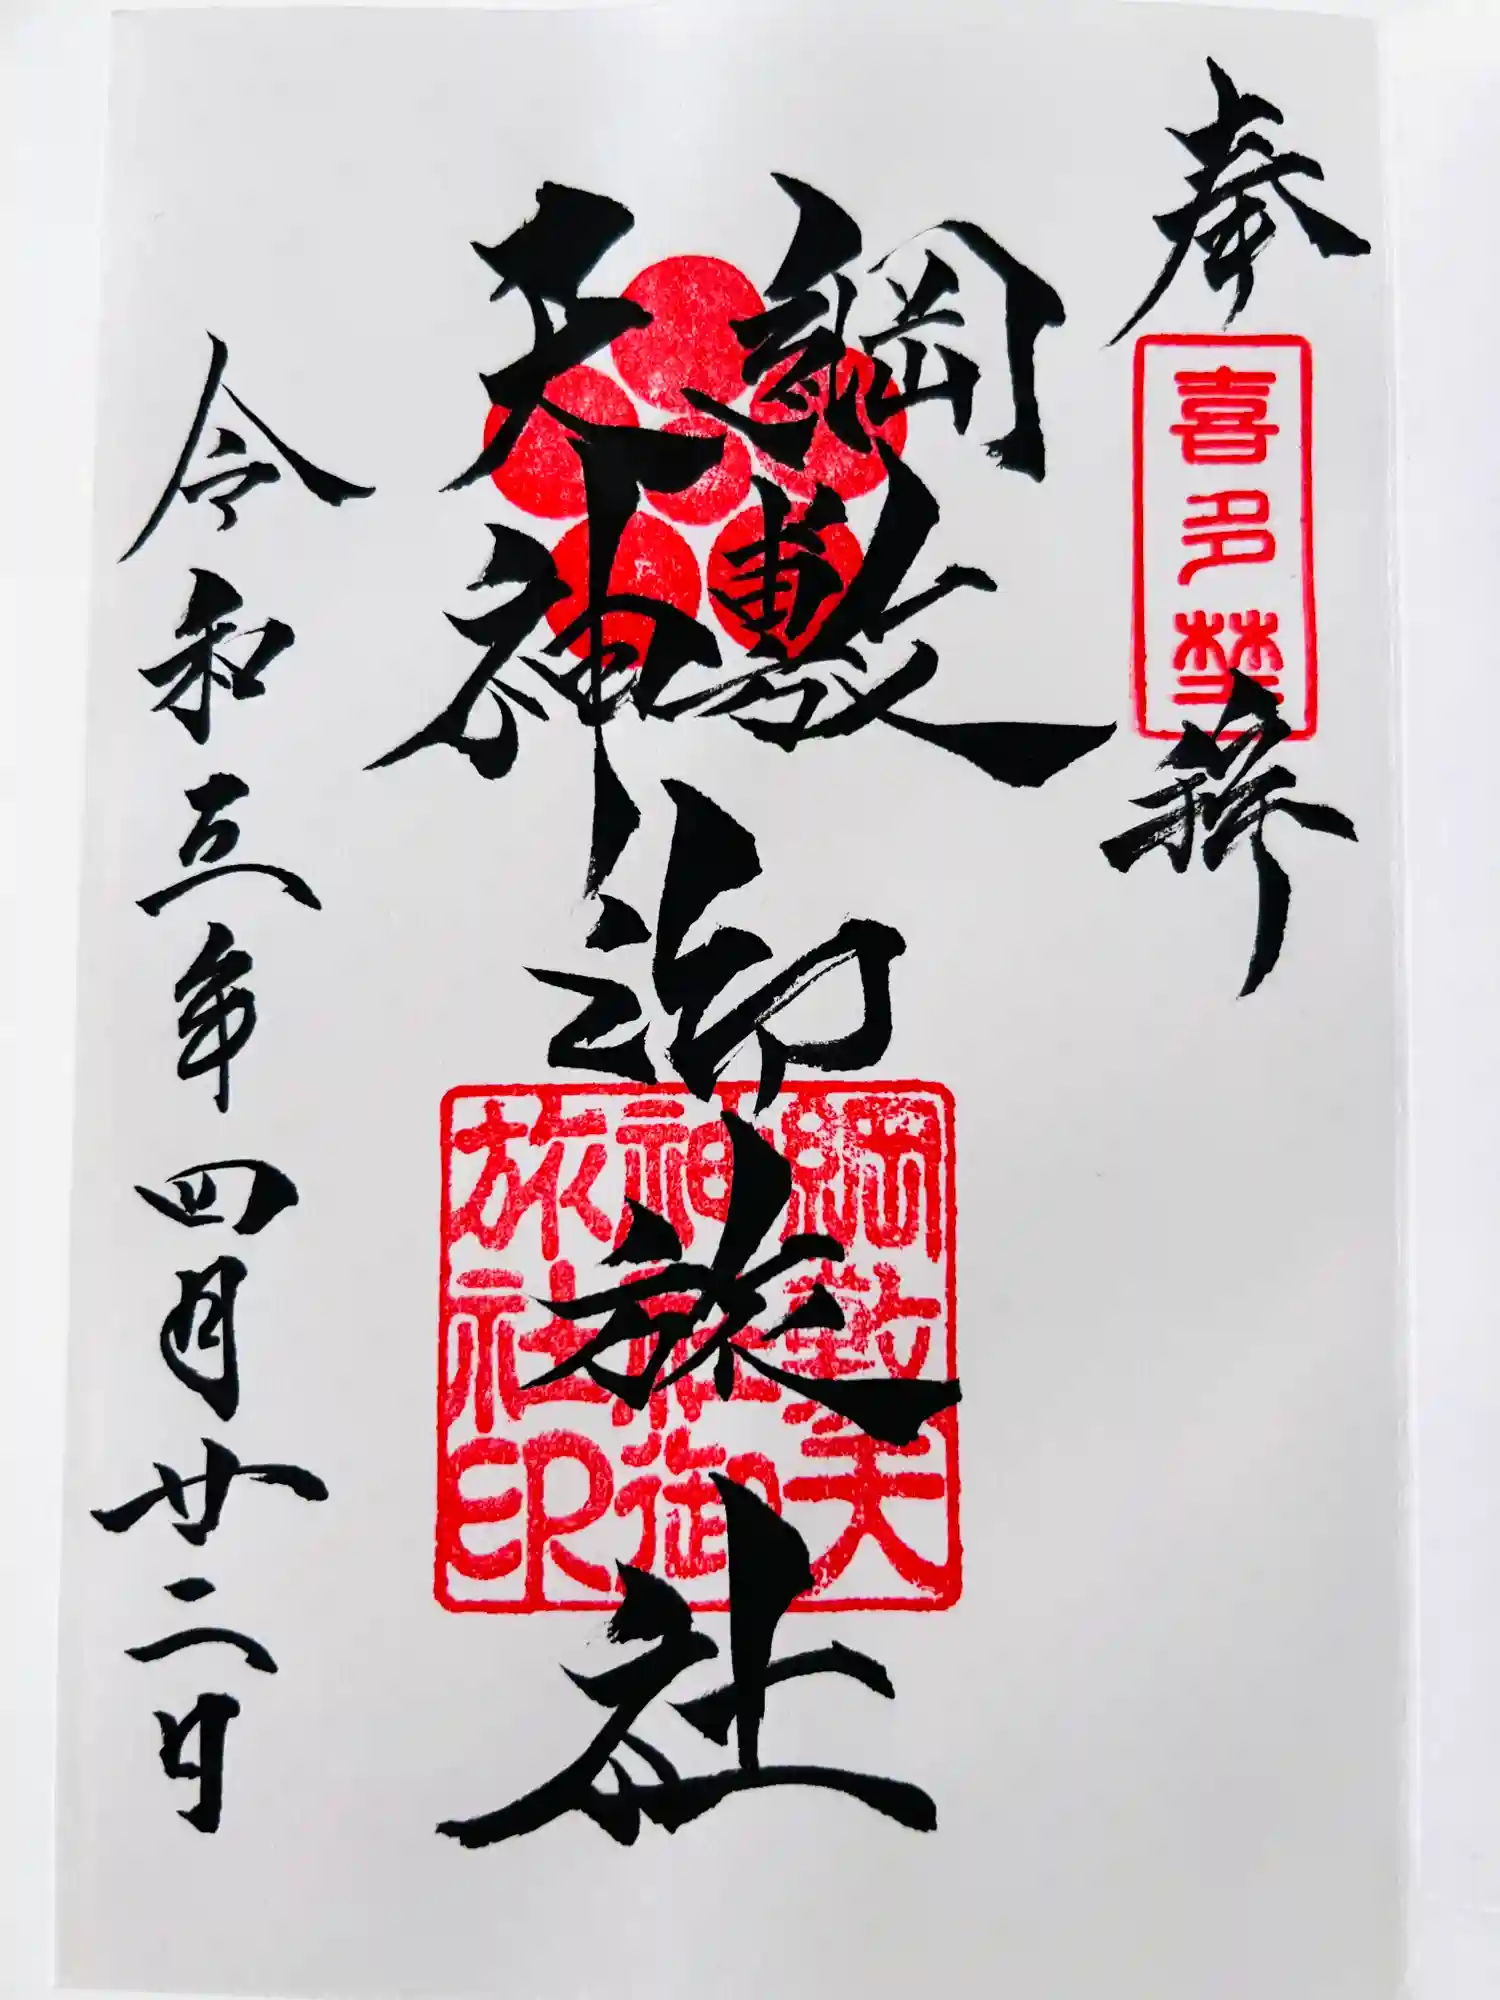 奉
喜多埜
拜
綱敷
天神
御旅社
綱敷天
神社御
旅社印
令和五年四月廿二日